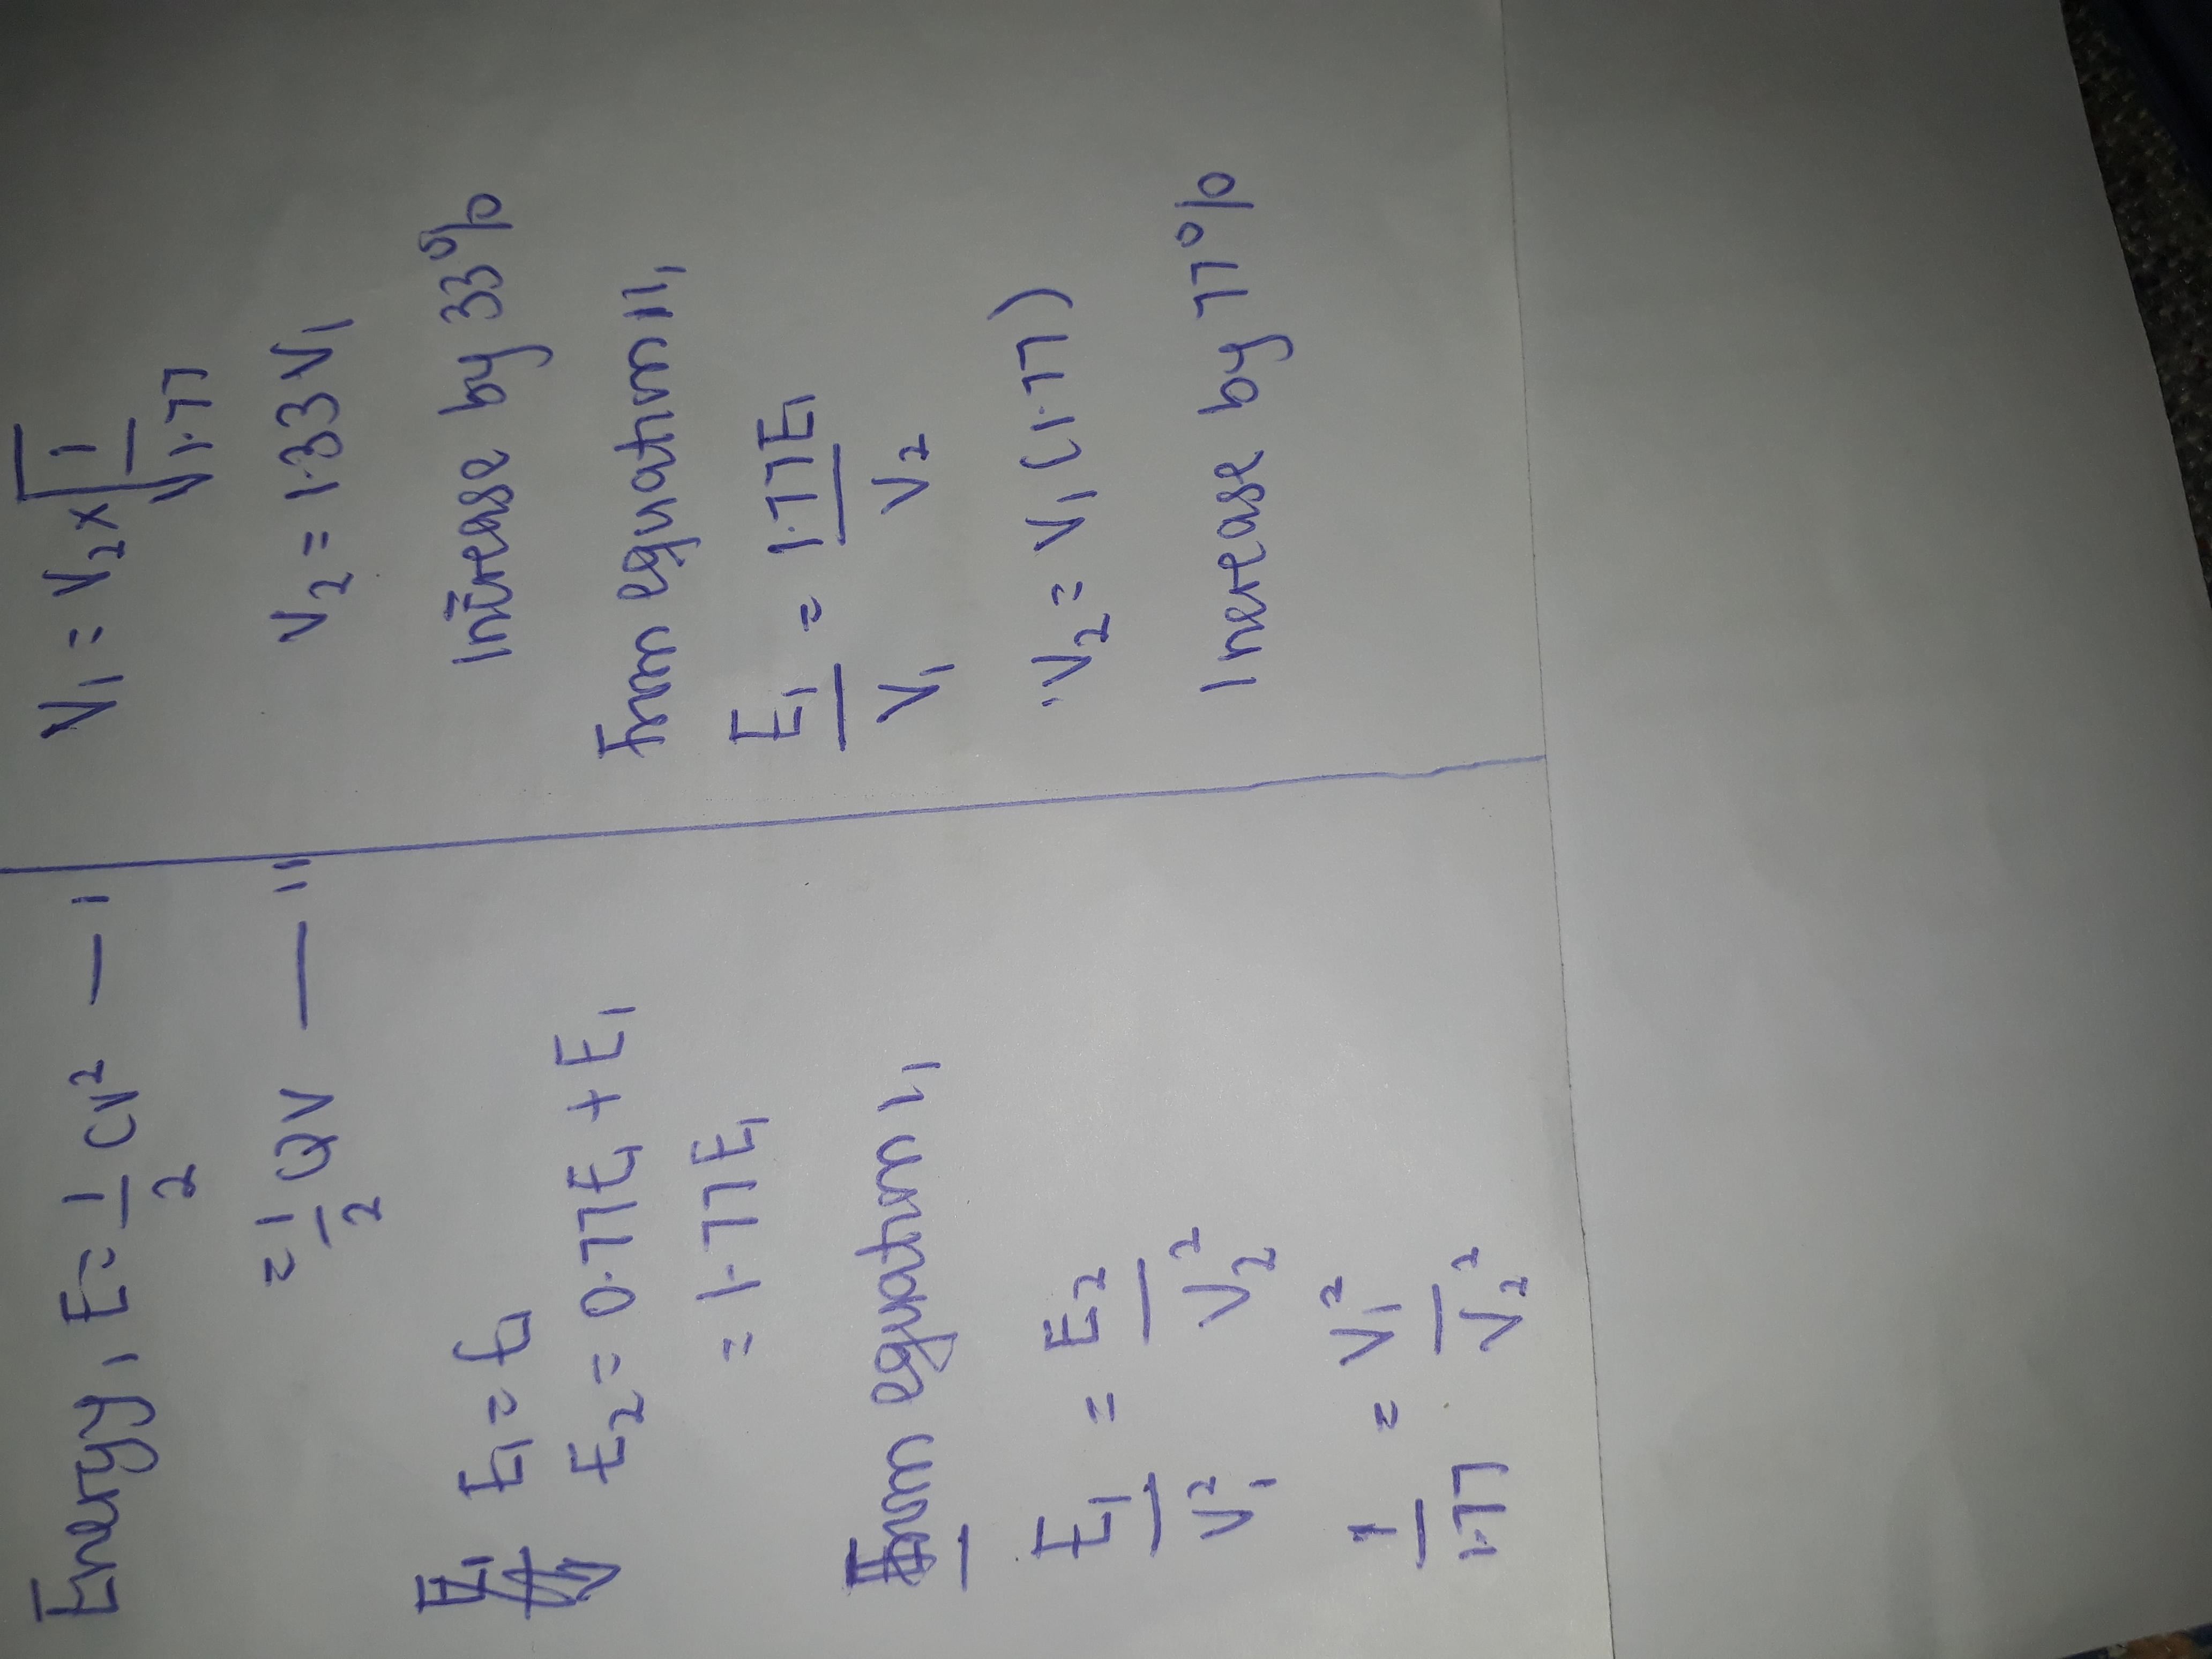 Energy, E = 1/2 CV² — I
= 1/2 QV — II
E₁ = E₁
E₂ = 0.77E₁ + E₁
= 1.77E₁
From equation I,
E₁/V₁² = E₂/V₂²
1/1.77 = V₁²/V₂²
V₁ = V₂ × √(1/√1.77)
V₂ = 1.33V₁
Increase by 33%
From equation II,
E₁/V₁ = 1.77E₁/V₂
V₂ = V₁(1.77)
Increase by 77%